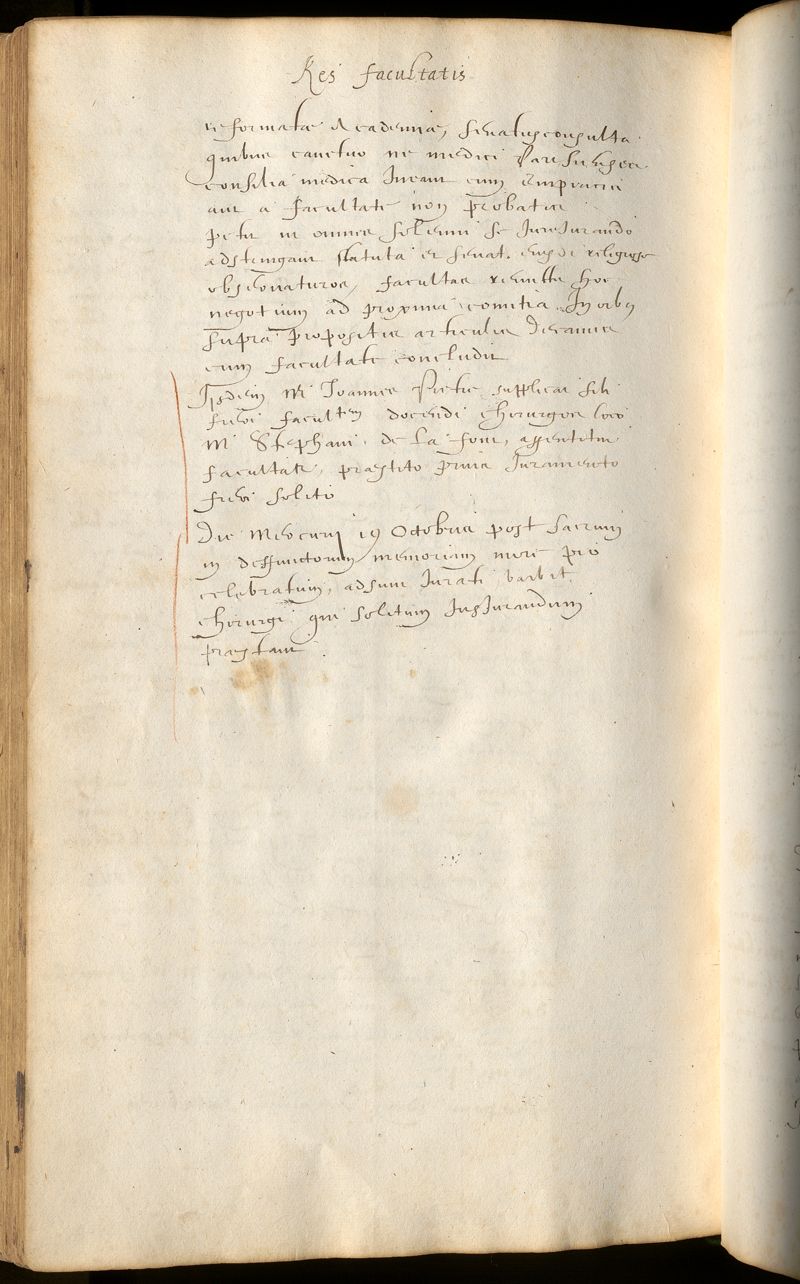 Res facultatis
reformatæ Academiæ, senatusconsulta
quibus cauetur ne medici Parisienses
consilia medica ineant cum Empiricis
aut a facultate non probatis
petit ut omnes solemni se Jurejurando
adstringant statuta et senat. ejusdē religiose
obseruaturos, facultas remittit hoc
negotium ad proxima comitia. In orbꝫ
supra propositis articulis Decanus
cum facultate concludit
M Joannes supplicat sibi
fieri facultem docendi chirurgos loco
M Stephani de la font, assentitur
facultate, præstito prius Juramento
fieri solito
Die Mercurij 19 Octobris post sacrum
in deffunctorum memoriam more pio
celebratum, adsunt Jurati barbit.
chirurgi qui solitum Jusiurandum
præstant.